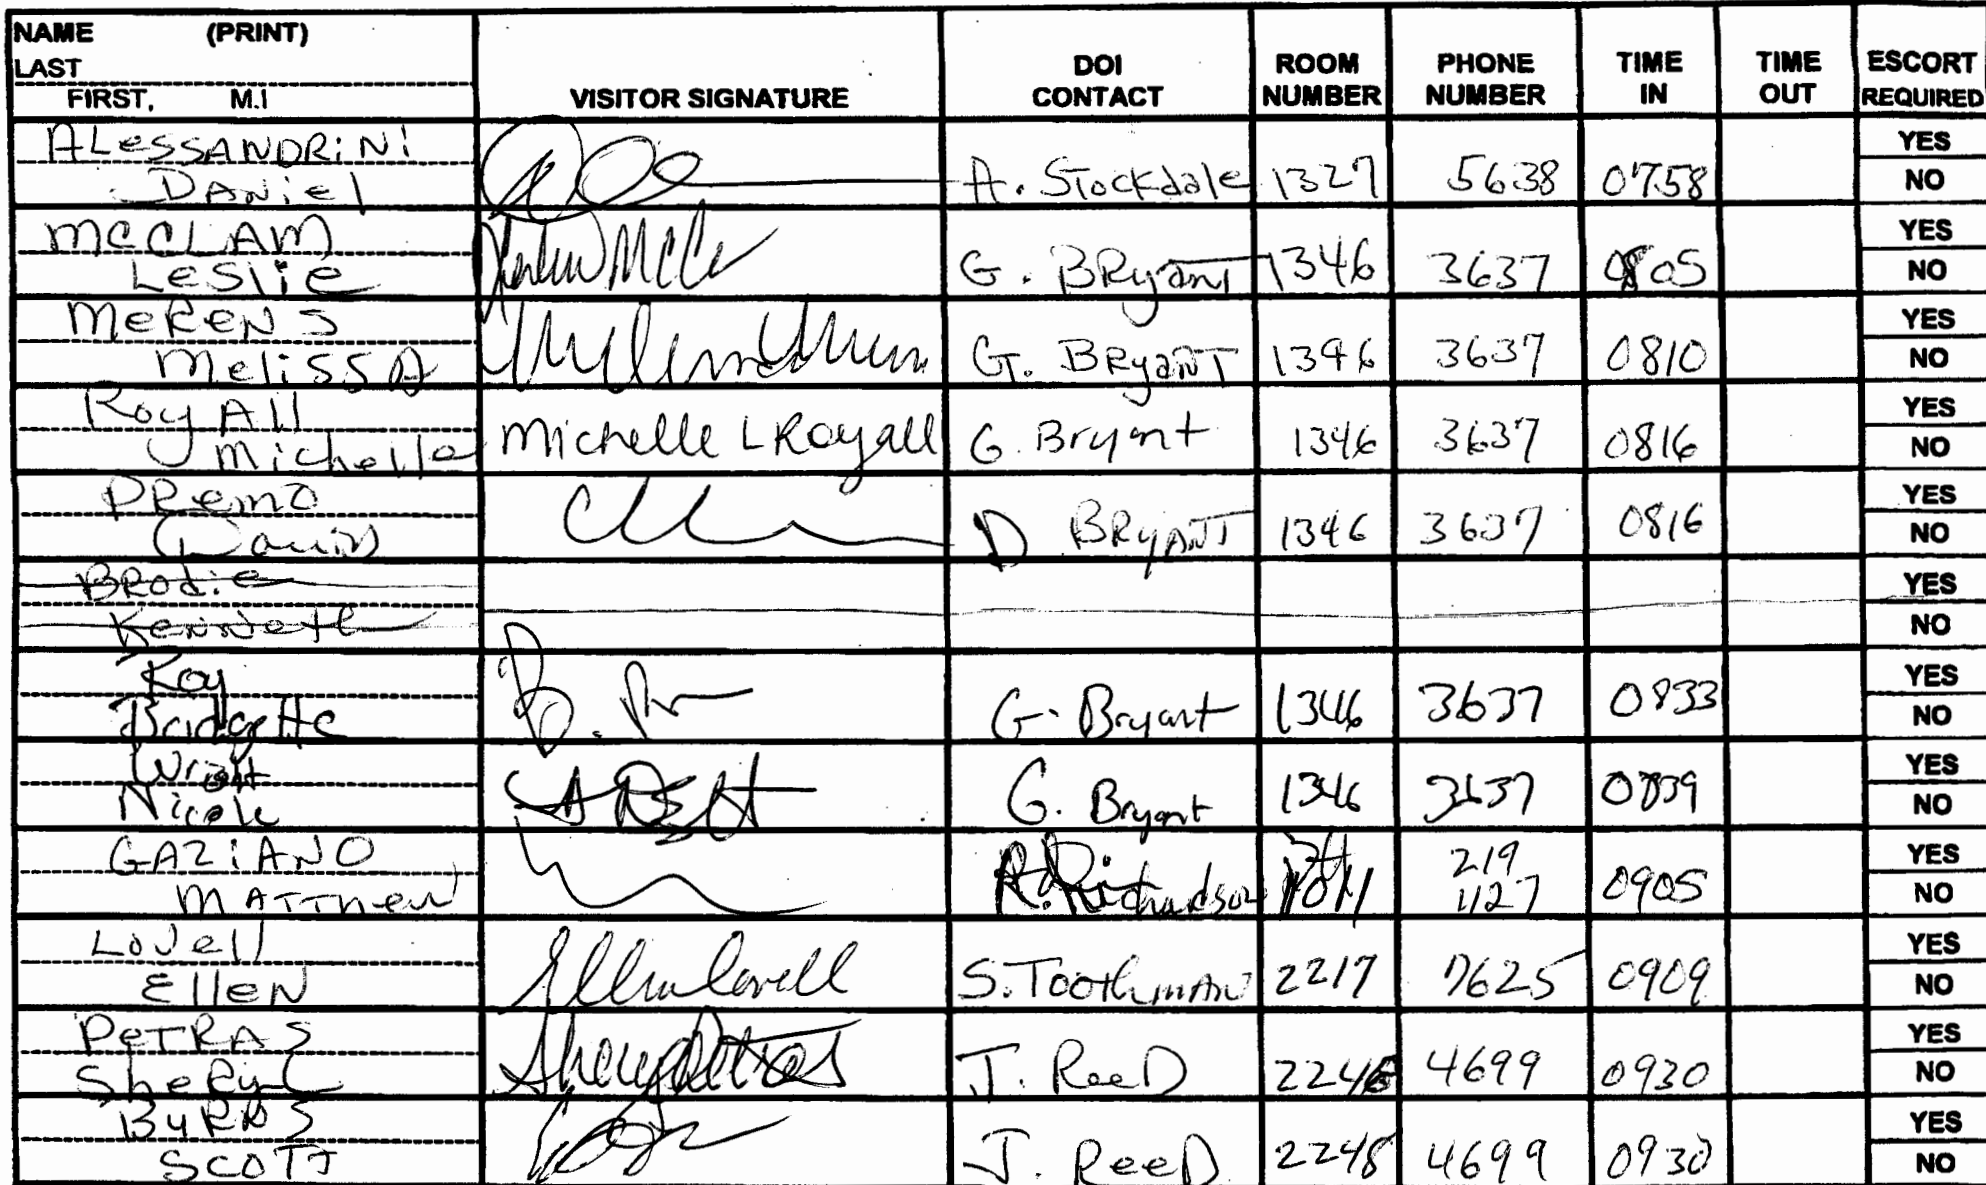 NAME (PRINT)
LAST
FIRST, M.I
VISITOR SIGNATURE
DOI CONTACT
ROOM NUMBER
PHONE NUMBER
TIME IN
TIME OUT
ESCORT REQUIRED
ALESSANDRiNi
DANiel
A. Stockdale 1327 5638 0758
YES
NO
McCLAM
LeSlie
G. BRyanT 1346 3637 0805
YES
NO
MeReNS
MeliSSA
G. BRyanT 1346 3637 0810
YES
NO
RoyAll
Michelle
Michelle L Royall G. Bryant 1346 3637 0816
YES
NO
PRemo
David
D BRyANT 1346 3637 0816
YES
NO
BRodie
Kenneth
YES
NO
Roy
Bridgette
G. Bryant 1346 3637 0833
YES
NO
Wright
Nicole
G. Bryant 1346 3637 0839
YES
NO
GAZiANO
MATThew
R. Richardson 219 1127 0905
YES
NO
Lovell
ElleN
Ellen Lovell S. ToothmAN 2217 7625 0909
YES
NO
PeTRAS
SheRyL
Sheryl Petras J. ReeD 4699 0930
YES
NO
ByRNS
SCOTT
J. ReeD 2248 4699 0930
YES
NO